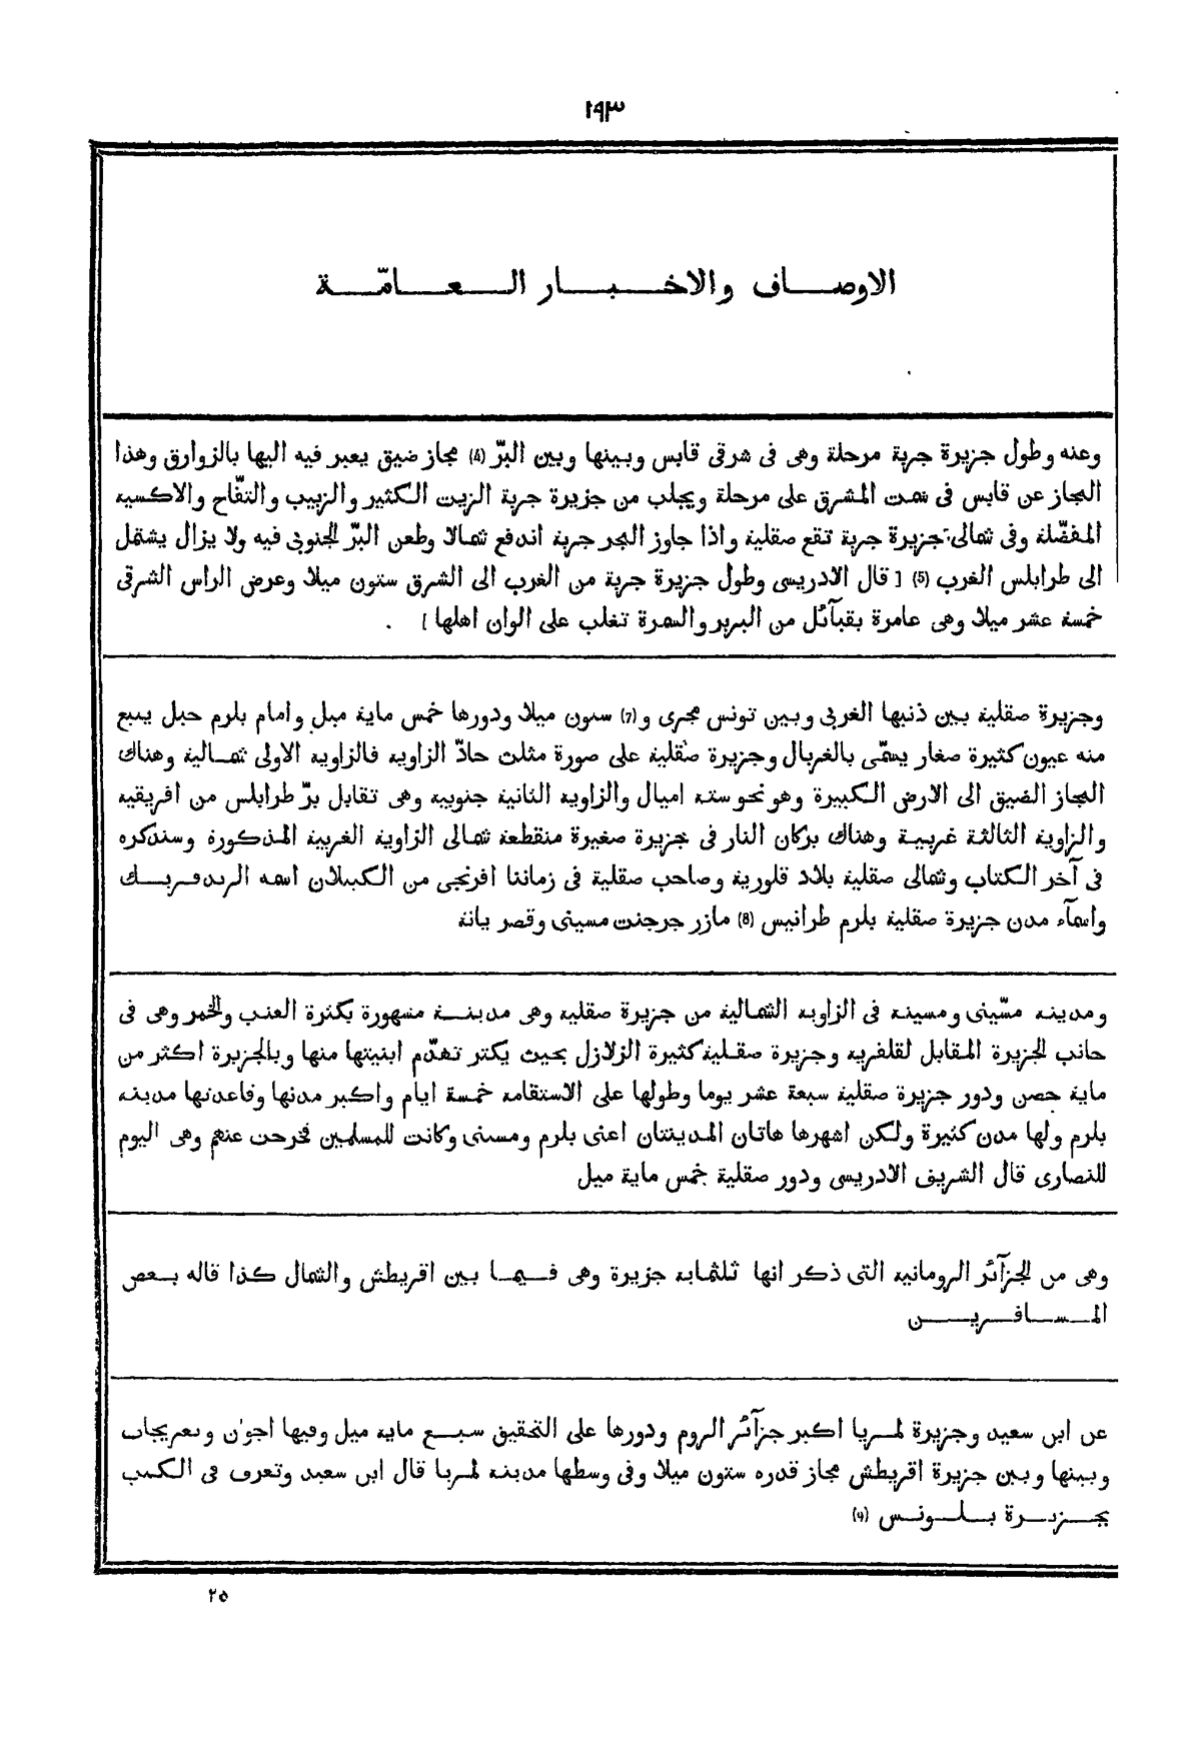 ١٩٣
الاوصاف والاخبار العامّة
وعنه وطول جزيرة جربة مرحلة وهى فى شرقى قابس وبينها وبين البرّ (4) مجاز ضيق يعبر فيه اليها بالزوارق وهذا
المجاز عن قابس فى سمت المشرق على مرحلة ويجلب من جزيرة جربة الزيت الكثير والزبيب والتفّاح والاكسية
المفضّلة وفى شمالى جزيرة جربة تقع صقلية واذا جاوز البحر جربة اندفع شمالا وطعن البرّ الجنوبى فيه ولا يزال يشتمل
الى طرابلس الغرب (5) [ قال الادريسى وطول جزيرة جربة من الغرب الى الشرق ستون ميلا وعرض الراس الشرقى
خمسة عشر ميلا وهى عامرة بقبآئل من البربر والسمرة تغلب على الوان اهلها ]
وجزيرة صقلية بين ذنبها الغربى وبين تونس مجرى و (7) ستون ميلا ودورها خمس ماية ميل وامام بلرم جبل ينبع
منه عيون كثيرة صغار يسمّى بالغربال وجزيرة صقلية على صورة مثلث حادّ الزاوية فالزاوية الاولى شمالية وهناك
المجاز الضيق الى الارض الكبيرة وهو نحو ستة اميال والزاوية الثانية جنوبية وهى تقابل برّ طرابلس من افريقية
والزاوية الثالثة غربية وهناك بركان النار فى جزيرة صغيرة منقطعة شمالى الزاوية الغربية المذكورة وسنذكره
فى آخر الكتاب وشمالى صقلية بلاد قلورية وصاحب صقلية فى زماننا افرنجى من الكيبلان اسمه الريدفريك
واسمآء مدن جزيرة صقلية بلرم طرانبس (8) مازر جرجنت مسينى وقصر يانة
ومدينة مسّينى ومسينه فى الزاوية الشمالية من جزيرة صقلية وهى مدينة مشهورة بكثرة العنب والخمر وهى فى
جانب الجزيرة المقابل لقلفرية وجزيرة صقلية كثيرة الزلازل بحيث يكثر تهدّم ابنيتها منها وبالجزيرة اكثر من
ماية حصن ودور جزيرة صقلية سبعة عشر يوما وطولها على الاستقامة خمسة ايام واكبر مدنها وقاعدتها مدينة
بلرم ولها مدن كثيرة ولكن اشهرها هاتان المدينتان اعنى بلرم ومسينى وكانت للمسلمين فخرجت عنهم وهى اليوم
للنصارى قال الشريف الادريسى ودور صقلية خمس ماية ميل
وهى من الجزآئر الرومانية التى ذكر انها ثلثماية جزيرة وهى فيما بين اقريطش والشمال كذا قاله بعض
المسافرين
عن ابن سعيد وجزيرة لمريا اكبر جزآئر الروم ودورها على التحقيق سبع ماية ميل وفيها اجوان وتعريجات
وبينها وبين جزيرة اقريطش مجاز قدره ستون ميلا وفى وسطها مدينة لمريا قال ابن سعيد وتعرف فى الكتب
بجزيرة بلونس (9)
٢٥